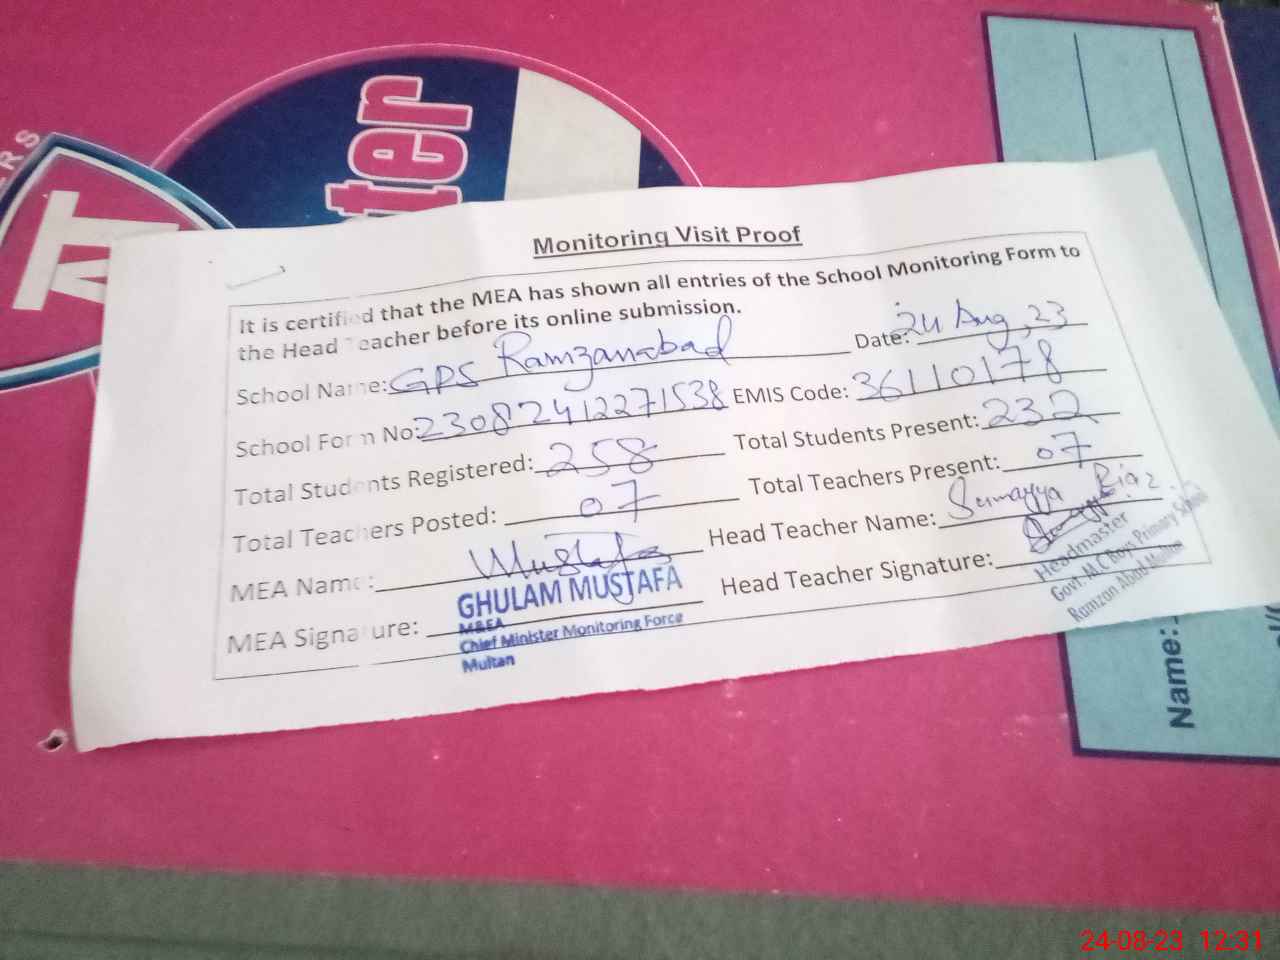 RS
T
ter
Monitoring Visit Proof
It is certified that the MEA has shown all entries of the School Monitoring Form to
the Head Teacher before its online submission.
School Name: GPS Ramzanabad Date: 24 Aug, 23
School Form No: 23082412271538 EMIS Code: 36110178
Total Students Registered: 258 Total Students Present: 232
Total Teachers Posted: 07 Total Teachers Present: 07
MEA Name: Mustafa Head Teacher Name: Sumayya Riaz
MEA Signature: Head Teacher Signature:
GHULAM MUSTAFA
M&EA
Chief Minister Monitoring Force
Multan
Headmaster
Govt. M.C Boys Primary School
Ramzan Abad Multan
Name:
24-08-23 12:31